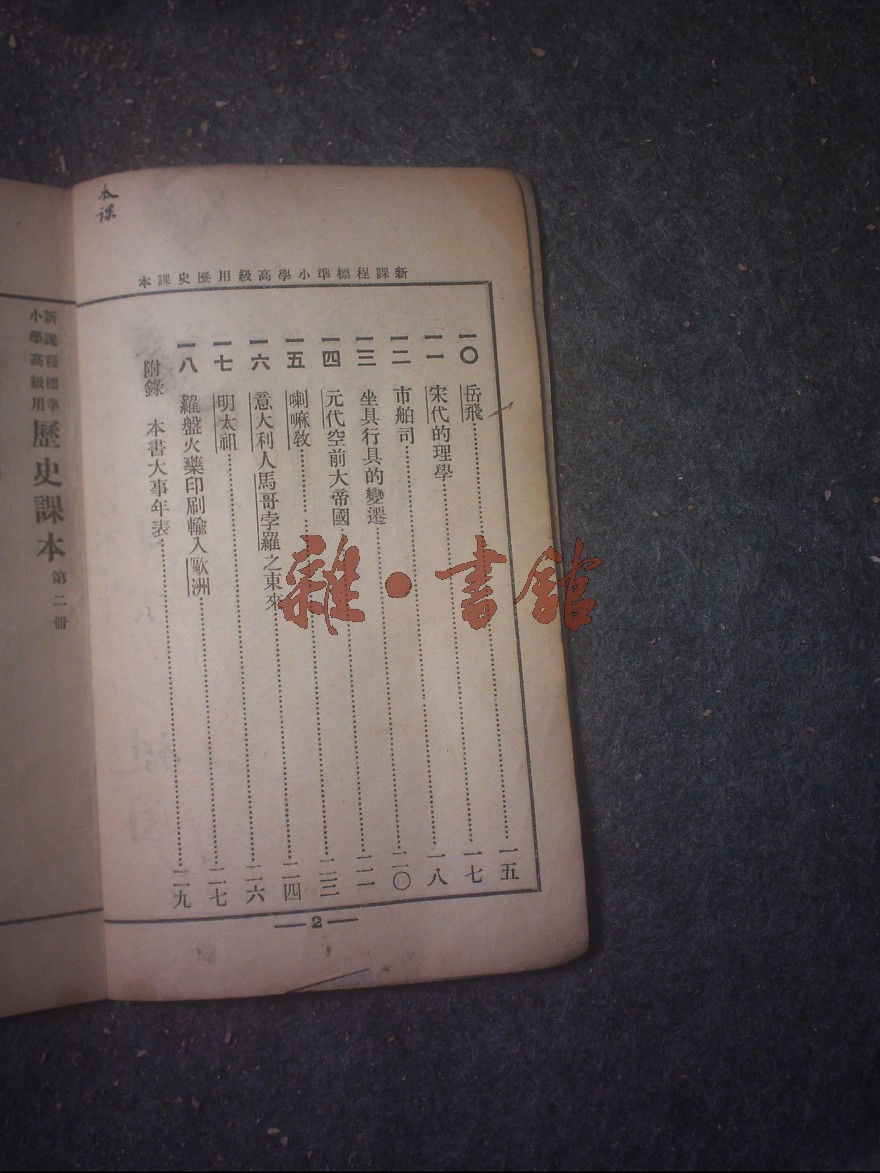 本課
新課程標準小學高級用歷史課本
一〇 岳飛……一五
一一 宋代的理學……一七
一二 市舶司……一八
一三 坐具行具的變遷……二〇
一四 元代空前大帝國……二一
一五 喇嘛教……二三
一六 意大利人馬哥孛羅之東來……二四
一七 明太祖……二六
一八 羅盤火藥印刷輸入歐洲……二七
附錄 本書大事年表……二九
2
新課程標準
小學高級用
歷史課本 第二冊
雜·書館